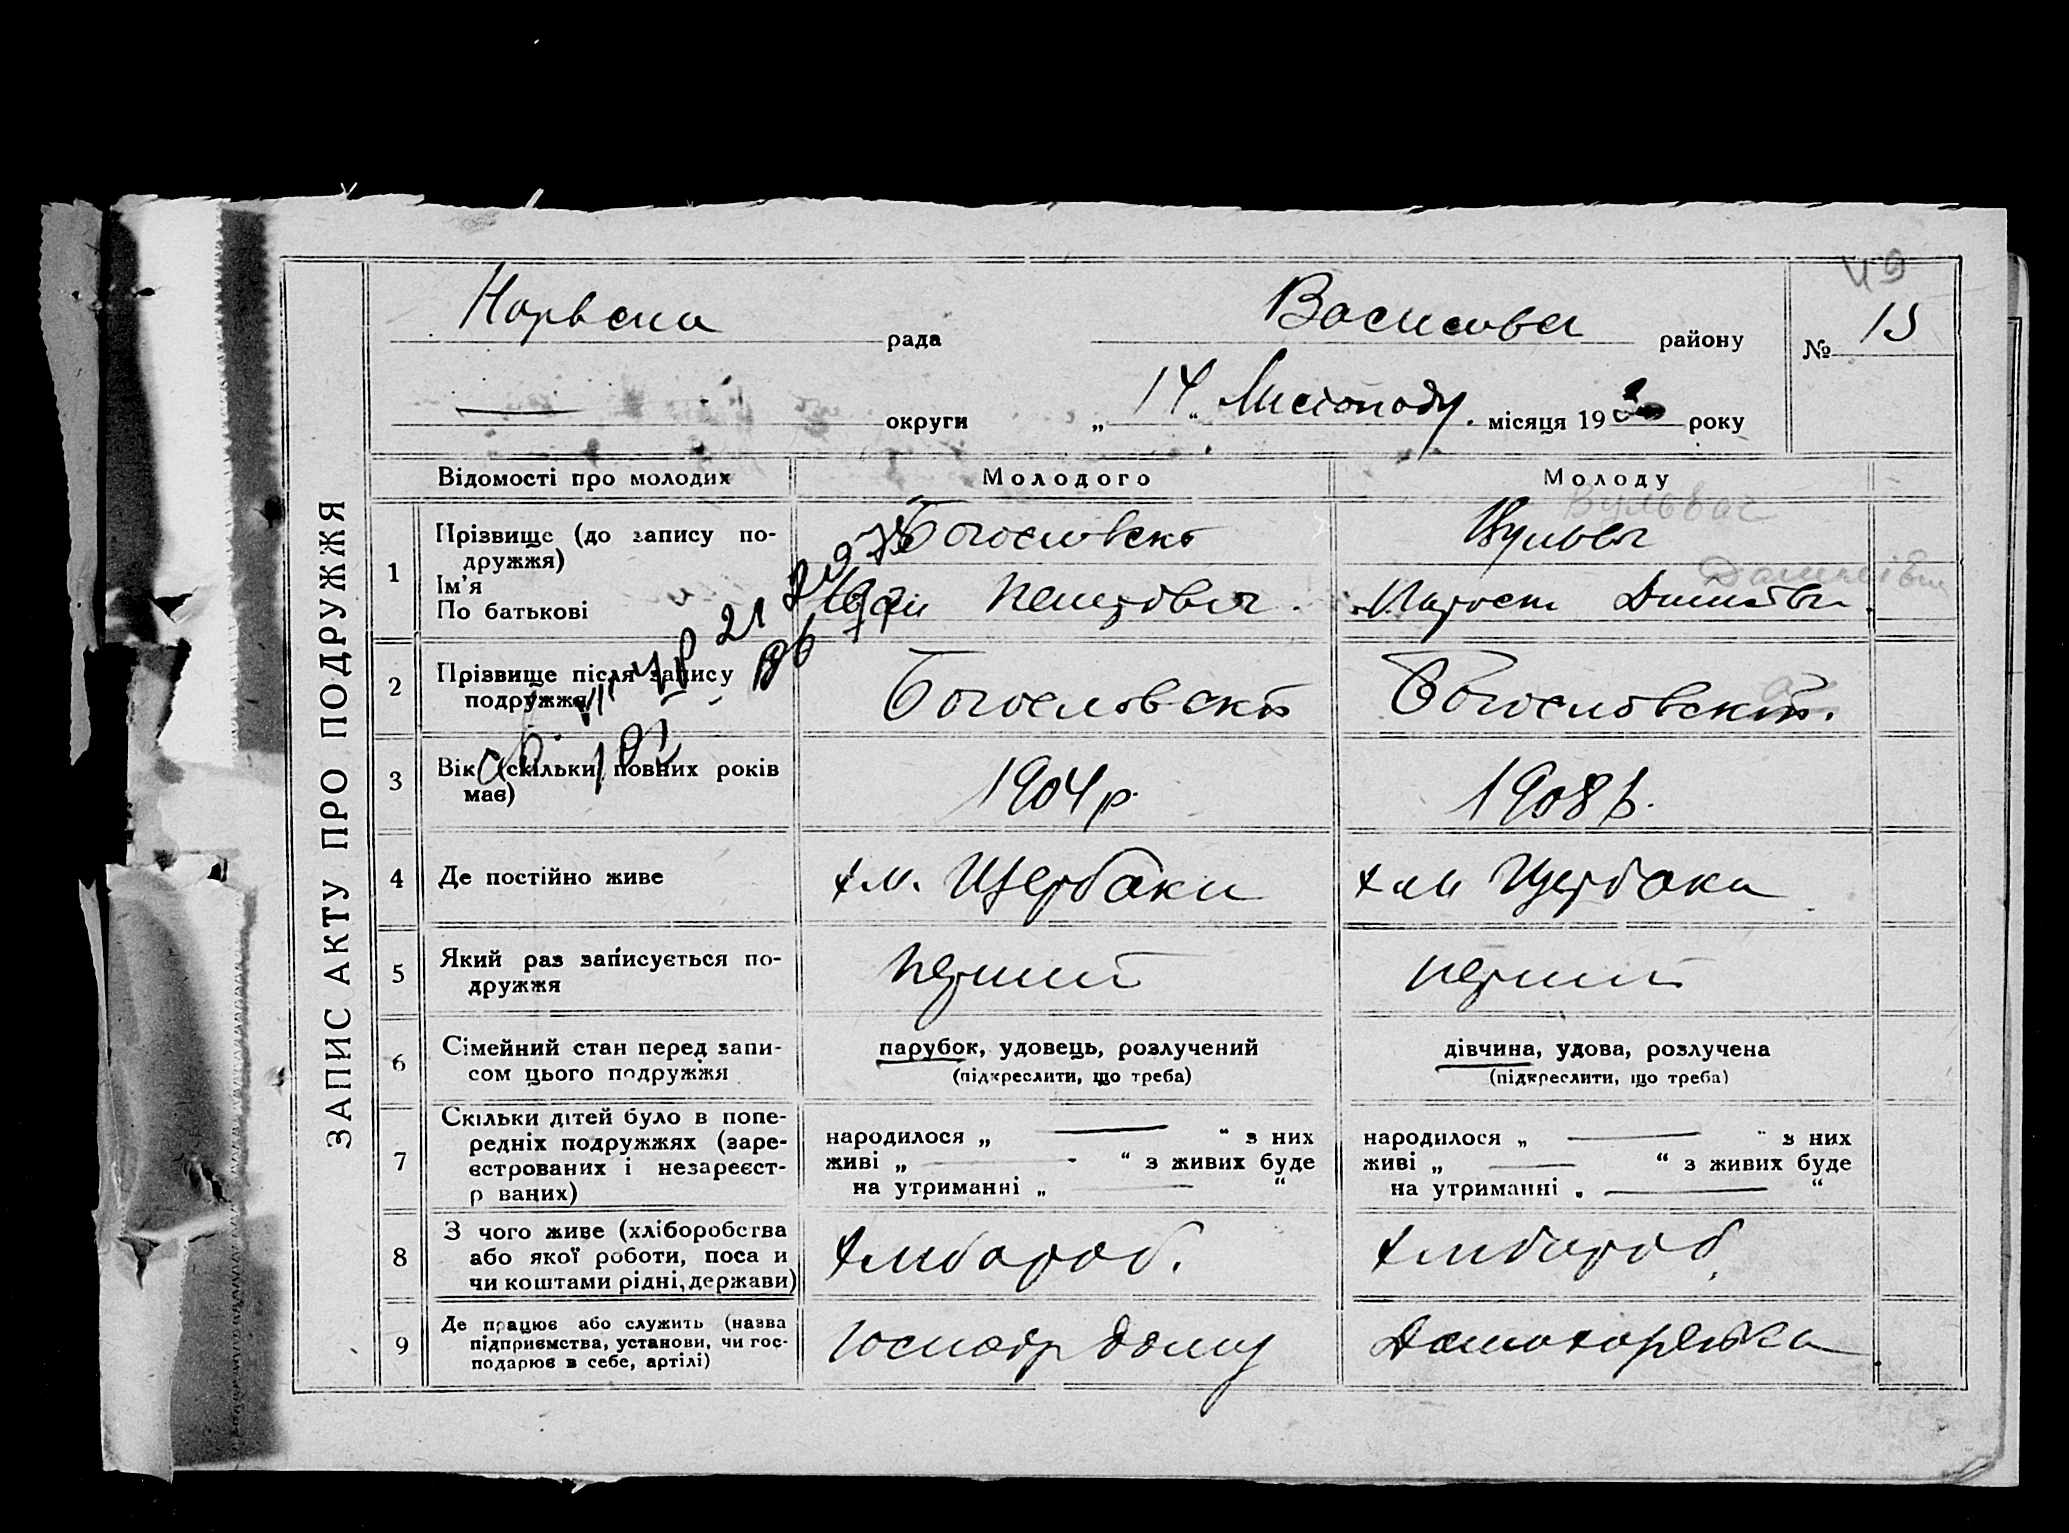 49
рада
району
№ 15
округи
„ 14 “ Листопаду місяця 19 року
ЗАПИС АКТУ ПРО ПОДРУЖЖЯ
Відомості про молодих Молодого Молоду
1 Прізвище (до запису по-
дружжя)
Ім’я
По батькові
Богословскі
Вульвач
2 Прізвище після запису
подружжя
Богословскі Богословскі
3 Вік (скільки повних років
має)
1904 р. 1908 р.
4 Де постійно живе
х м. Щербаки х м Щербаки
5 Який раз записується по-
дружжя
перший перший
6 Сімейний стан перед запи-
сом цього подружжя
парубок, удовець, розлучений
(підкреслити, що треба)
дівчина, удова, розлучена
(підкреслити, що треба)
7 Скільки дітей було в попе-
редніх подружжях (заре-
єстрованих і незареєст-
р ваних)
народилося „ “ з них
живі „ “ з живих буде
на утриманні „ “
народилося „ “ з них
живі „ “ з живих буде
на утриманні „ “
8 З чого живе (хліборобства
або якої роботи, поса и
чи коштами рідні, держави)
хлібороб. хлібороб
9 Де працює або служить (назва
підприємства, установи, чи гос-
подарює в себе, артілі)
дому
Домохозяйка